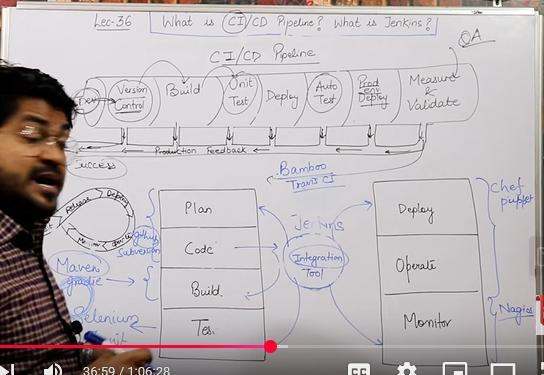 Lec-36
What is CI/CD Pipeline? What is Jenkins?
QA
CI/CD Pipeline
Dev
Version
Control
Build
Unit
Test
Deploy
Auto
Test
Prod
env
Deploy
Measure
&
Validate
Production Feedback
Success
Bamboo
Travis CI
Release
Deploy
Plan
Code
Build
github
subversion
Maven
gradle
Selenium
Jenkins
Integration
Tool
Deploy
Operate
Monitor
Chef
puppet
Nagios
36:59 / 1:06:28
CC